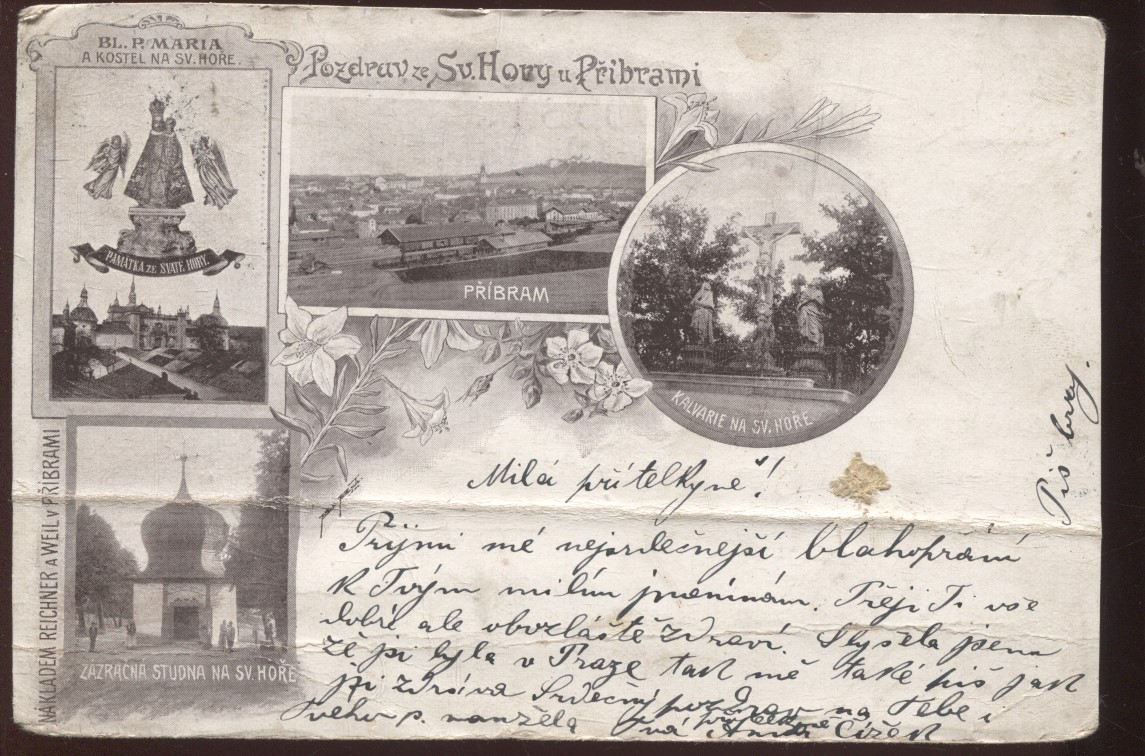 BL. P. MARIA
A KOSTEL NA SV. HOŘE.
Pozdrav ze Sv. Hory u Příbrami
PAMÁTKA ZE SVATÉ HORY.
PŘÍBRAM
KALVARIE NA SV. HOŘE
ZÁZRAČNÁ STUDNA NA SV. HOŘE
NÁKLADEM REICHNER A WEIL V PŘÍBRAMI
Milá přítelkyně!
Prijmi mé nejsrdečnější blahopřání
k Tvým milím jmeninám. Přeji Ti vše
dobré ale obvzláště zdraví. Slyšela jsem
že jsi byla v Praze tak mě také piš jak
jsi zdráva Srdečný pozdrav na Tebe i
Tveho p. manžela Tvá přítelkyně Čížek
Piš brzy.